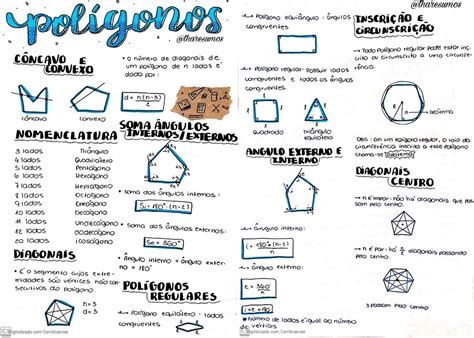 polígonos
@tharesumos
CÔNCAVO E
CONVEXO
côncavo
convexo
• o número de diagonais de
um polígono de n lados é
dado por:
d = n(n-3)
2
NOMENCLATURA
3 lados Triângulo
4 lados Quadrilátero
5 lados Pentágono
6 lados Hexágono
7 lados Heptágono
8 lados Octógono
9 lados Eneágono
10 lados Decágono
11 lados Undecágono
12 lados Dodecágono
20 lados Icoságono
DIAGONAIS
• É o segmento cujos extre-
midades são vértices não con-
secutivos do polígono.
n = 5
d = 5
SOMA ÂNGULOS
INTERNOS/EXTERNOS
• soma dos ângulos internos:
Si = 180°·(n-2)
• soma dos ângulos externos:
Se = 360°
• Ângulo interno + ângulo exter-
no = 180°
POLÍGONOS
REGULARES
• Polígono equilátero: lados
congruentes
• Polígono equiângulo: ângulos
congruentes.
• Polígono regular: Possuir lados
congruentes e ângulos
congruentes.
quadrado
triângulo
equilátero
ANGULO EXTERNO E
INTERNO
• Ângulo interno:
i = 180°·(n-2)
n
• Ângulo externo:
e = 360°
n
i + e = 180
• número de lados é igual ao número
de vértices
@tharesumos
INSCRIÇÃO E
CIRCUNSCRIÇÃO
→ Todo Polígono regular pode estar ins-
crito ou circunscrito a uma circunfe-
rência.
apótema
OBS: em um polígono regular, o raio da
circunferência inscrita a esse polígono
chama-se apótema
DIAGONAIS
CENTRO
→ n é ímpar: não há diagonais que pas-
sam pelo centro.
→ n é Par: há n/2 diagonais que passam
pelo centro.
3 passam pelo centro
CS Digitalizado com CamScanner
CS Digitalizado com CamScanner